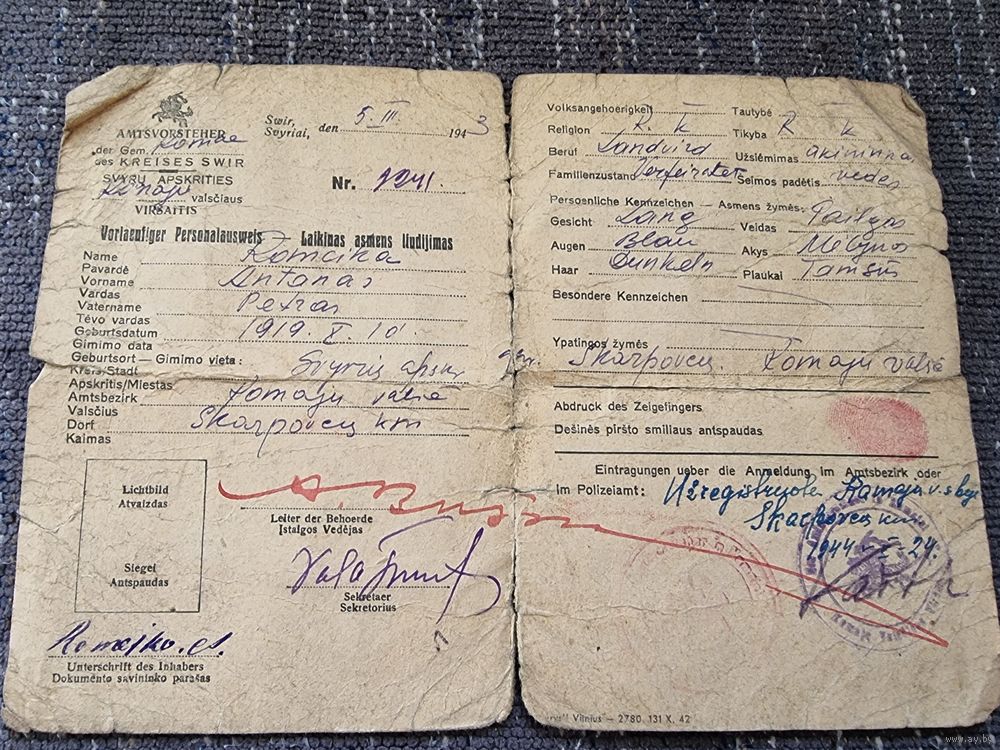 AMTSVORSTEHER
der Gem. Komae
des KREISES SWIR
SVYRŲ APSKRITIES
valsčiaus
VIRŠAITIS
Swir,
Svyriai, den 5. III 1943
Nr. 1241.
Vorlaeufiger Personalausweis — Laikinas asmens liudijimas
Name
Pavardė Romeika
Vorname
Vardas Antanas
Vatername
Tėvo vardas Petras
Geburtsdatum
Gimimo data 1919. X. 10.
Geburtsort — Gimimo vieta:
Kreis/Stadt
Apskritis/Miestas Svyrių apskr.
Amtsbezirk
Valsčius Komajų valsč
Dorf
Kaimas Skarpovcų km
Lichtbild
Atvaizdas
Siegel
Antspaudas
Leiter der Behoerde
Įstaigos Vedėjas
Sekretaer
Sekretorius
Romejko A.
Unterschrift des Inhabers
Dokumento savininko parašas
Volksangehoerigkeit — Tautybė —
Religion R. k Tikyba R k
Beruf Landvird Užsiėmimas ūkininkas
Familienzustand Verfeiratet Šeimos padėtis vedęs
Persoenliche Kennzeichen — Asmens žymės:
Gesicht Lang Veidas Pailgas
Augen Blau Akys Mėlyno
Haar Dunkeln Plaukai Tamsūs
Besondere Kennzeichen
Ypatingos žymės
gyv. Skarpovcų. Komajų valsč
Abdruck des Zeigelingers
Dešinės piršto smiliaus antspaudas
Eintragungen ueber die Anmeldung im Amtsbezirk oder
im Polizeiamt: Užregistruota Kamajų v. sby.
Skarpovcų km
1944-I-24.
Vilnius — 2780. 131 X. 42
www.ay.by